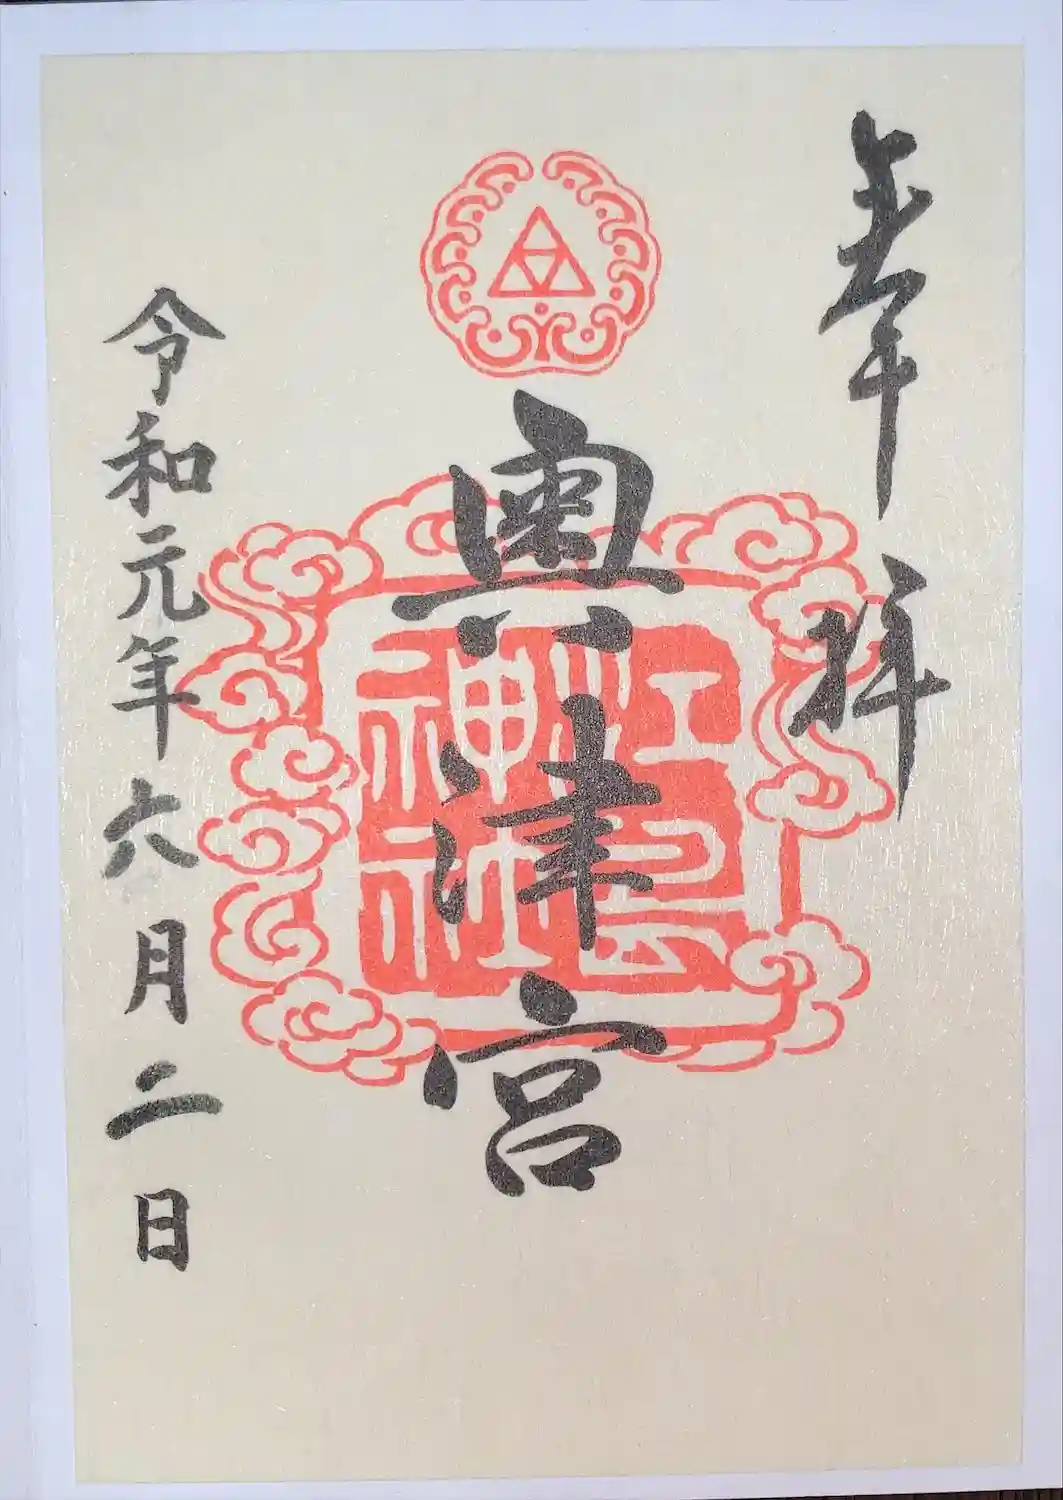 奉拝
奥津宮
江島神社
令和元年六月二日